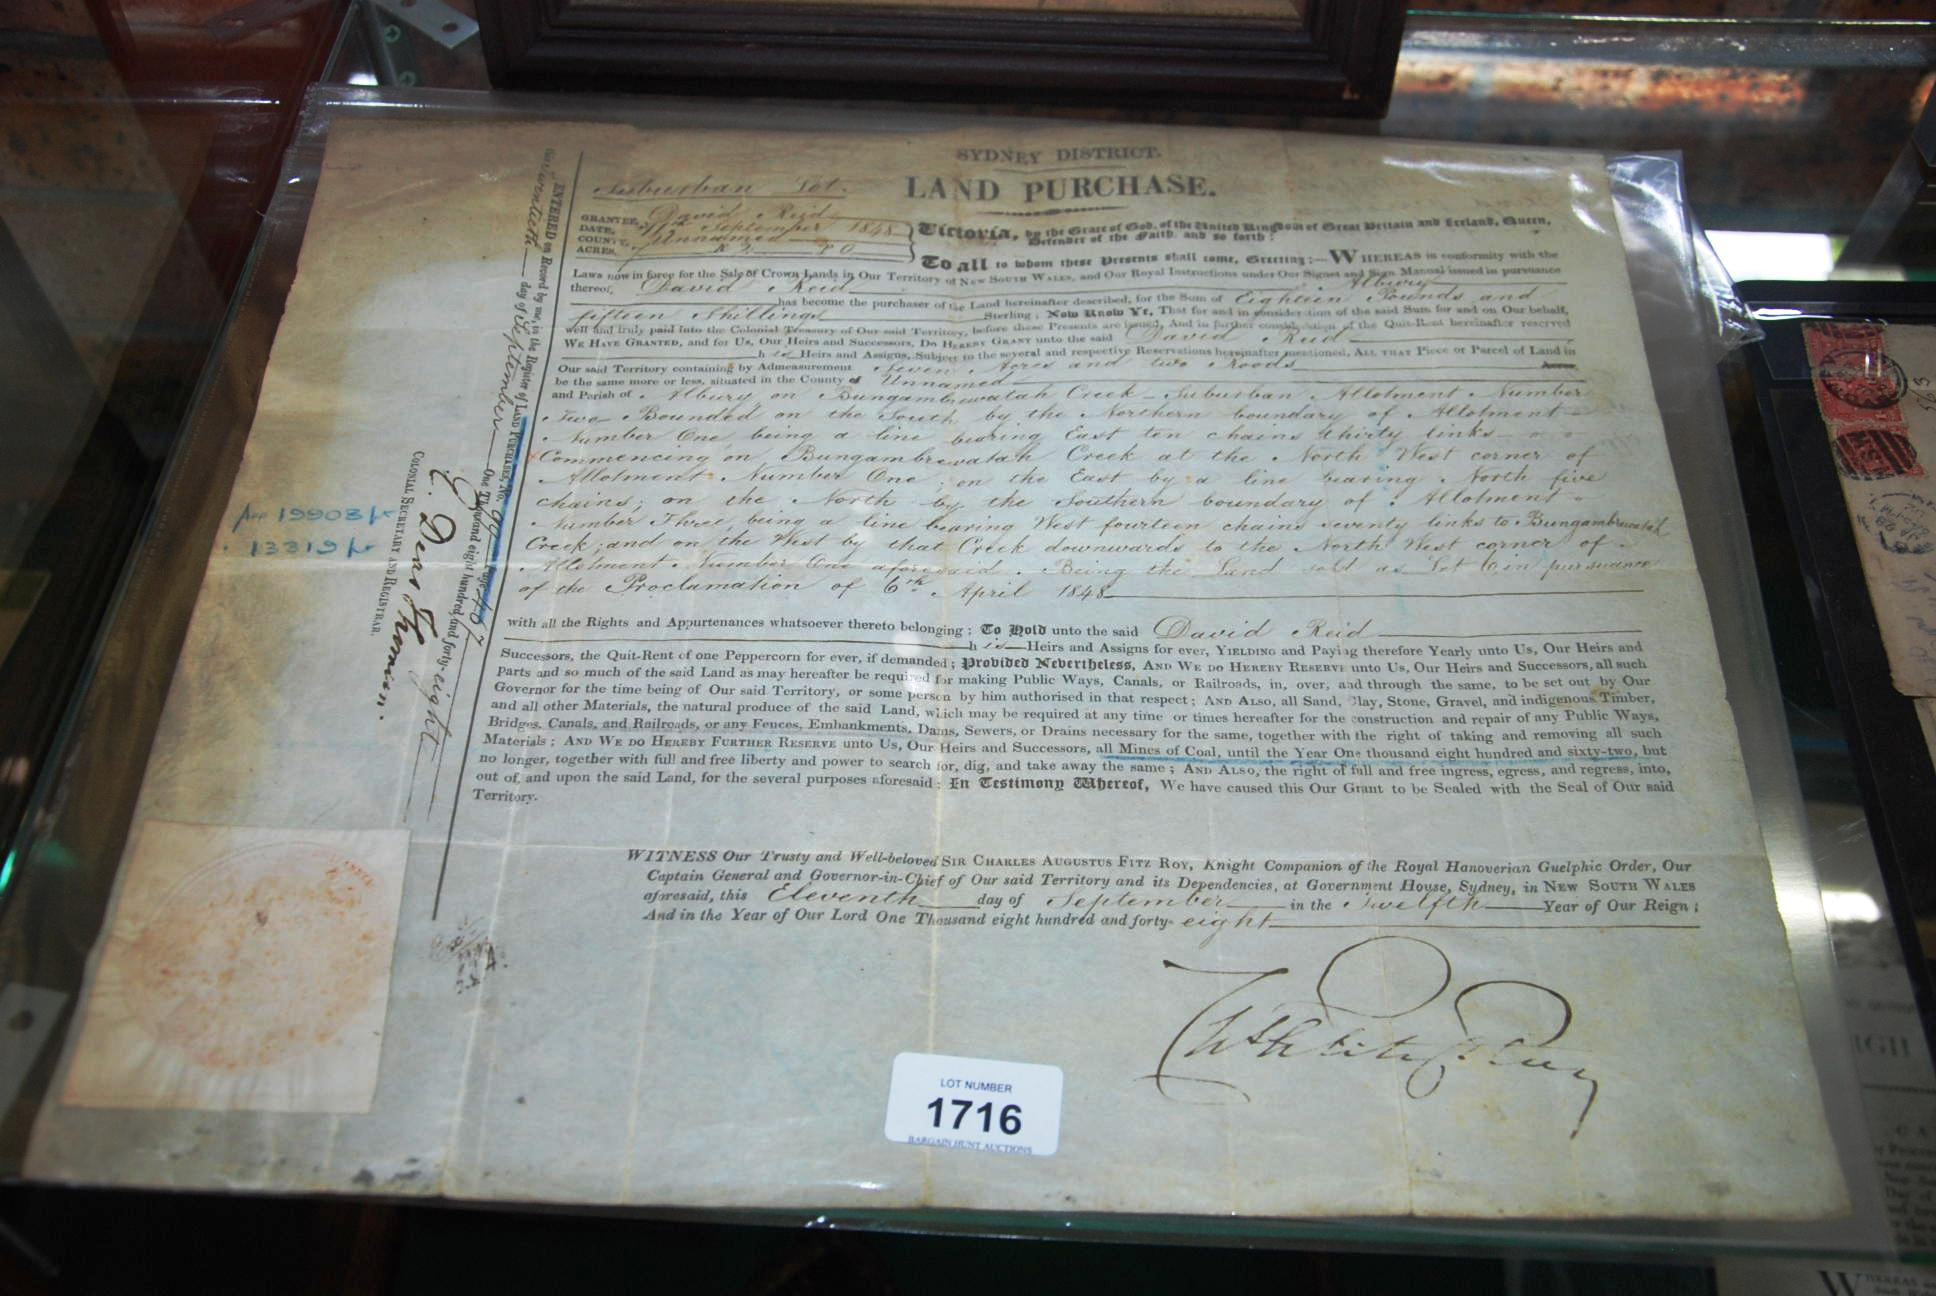 SYDNEY DISTRICT.
LAND PURCHASE.
Suburban Lot.
GRANTEE, David Reid
DATE, 11th September 1848
COUNTY, Unnamed
ACRES, 7 R 2 P 0
Victoria, by the Grace of God, of the United Kingdom of Great Britain and Ireland, Queen,
Defender of the Faith, and so forth:
To all to whom these Presents shall come, Greeting:—WHEREAS in conformity with the
Laws now in force for the Sale of Crown Lands in Our Territory of NEW SOUTH WALES, and Our Royal Instructions under Our Signet and Sign Manual issued in pursuance
thereof, David Reid Albury
has become the purchaser of the Land hereinafter described, for the Sum of Eighteen Pounds and
fifteen Shillings Sterling; Now Know Ye, That for and in consideration of the said Sum for and on Our behalf,
well and truly paid into the Colonial Treasury of Our said Territory, before these Presents are issued, And in further consideration of the Quit-Rent hereinafter reserved
WE HAVE GRANTED, and for Us, Our Heirs and Successors, DO HEREBY GRANT unto the said David Reid
his Heirs and Assigns, Subject to the several and respective Reservations hereinafter mentioned, ALL THAT Piece or Parcel of Land in
Our said Territory containing by Admeasurement Seven Acres and two Roods Acres
be the same more or less, situated in the County of Unnamed
and Parish of Albury on Bungambrewatah Creek - Suburban Allotment Number
Two Bounded on the South by the Northern boundary of Allotment
Number One being a line bearing East ten chains thirty links
Commencing on Bungambrewatah Creek at the North West corner of
Allotment Number One; on the East by a line bearing North five
chains; on the North by the Southern boundary of Allotment
Number Three, being a line bearing West fourteen chains seventy links to Bungambrewatah
Creek; and on the West by that Creek downwards to the North West corner of
Allotment Number One aforesaid. Being the Land sold as Lot 6 in pursuance
of the Proclamation of 6th April 1848
with all the Rights and Appurtenances whatsoever thereto belonging; To Hold unto the said David Reid
his Heirs and Assigns for ever, YIELDING and Paying therefore Yearly unto Us, Our Heirs and
Successors, the Quit-Rent of one Peppercorn for ever, if demanded; Provided Nevertheless, AND WE DO HEREBY RESERVE unto Us, Our Heirs and Successors, all such
parts and so much of the said Land as may hereafter be required for making Public Ways, Canals, or Railroads, in, over, and through the same, to be set out by Our
Governor for the time being of Our said Territory, or some person by him authorised in that respect; AND ALSO, all Sand, Clay, Stone, Gravel, and indigenous Timber,
and all other Materials, the natural produce of the said Land, which may be required at any time or times hereafter for the construction and repair of any Public Ways,
Bridges, Canals, and Railroads, or any Fences, Embankments, Dams, Sewers, or Drains necessary for the same, together with the right of taking and removing all such
Materials; AND WE DO HEREBY FURTHER RESERVE unto Us, Our Heirs and Successors, all Mines of Coal, until the Year One thousand eight hundred and sixty-two, but
no longer, together with full and free liberty and power to search for, dig, and take away the same; AND ALSO, the right of full and free ingress, egress, and regress, into,
out of, and upon the said Land, for the several purposes aforesaid; In Testimony Whereof, We have caused this Our Grant to be Sealed with the Seal of Our said
Territory.
WITNESS Our Trusty and Well-beloved SIR CHARLES AUGUSTUS FITZ ROY, Knight Companion of the Royal Hanoverian Guelphic Order, Our
Captain General and Governor-in-Chief of Our said Territory and its Dependencies, at Government House, Sydney, in NEW SOUTH WALES
aforesaid, this Eleventh day of September in the Twelfth Year of Our Reign;
And in the Year of Our Lord One Thousand eight hundred and forty-eight
ENTERED on Record by me, in the Register of LAND PURCHASES, No. 90 Page 487
this Twentieth day of September One Thousand eight hundred and forty-eight
E. Deas Thomson.
COLONIAL SECRETARY AND REGISTRAR.
19908
13319
LOT NUMBER
1716
BARGAIN HUNT AUCTIONS